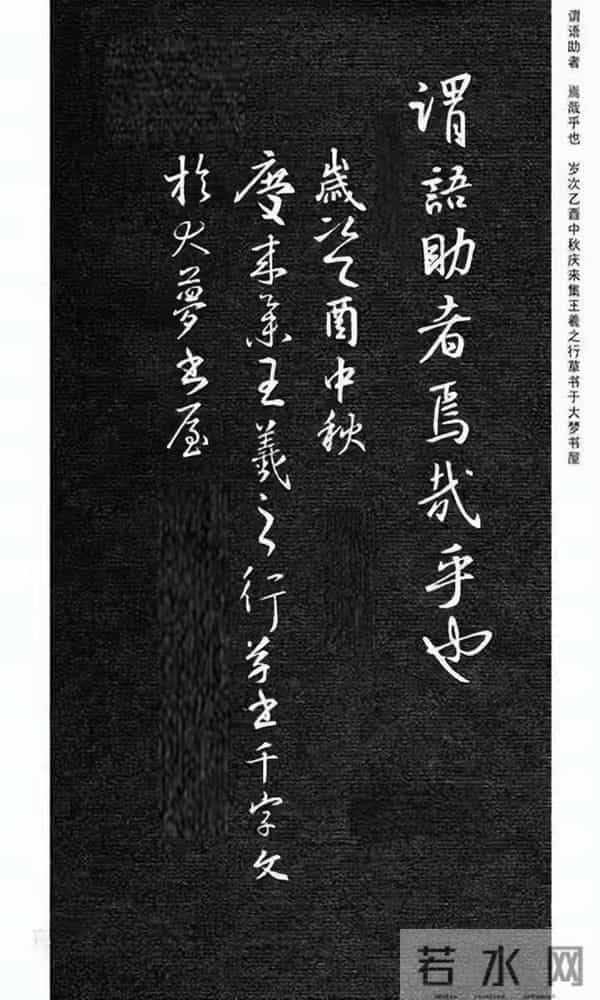 谓语助者 焉哉乎也 岁次乙酉中秋庆来集王羲之行草书于大梦书屋
謂語助者焉哉乎也
歲次乙酉中秋
慶来集王羲之行草書千字文
於大夢書屋
若水网